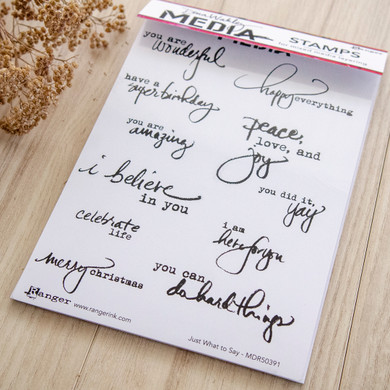 MEDIA
STAMPS
you are
wonderful
happy everything
have a
super birthday
peace,
love, and
joy
you are
amazing
i believe
in you
you did it,
yay
celebrate
life
i am
here for you
merry christmas
you can
do hard things
Ranger
www.rangerink.com
Just What to Say - MDR50391